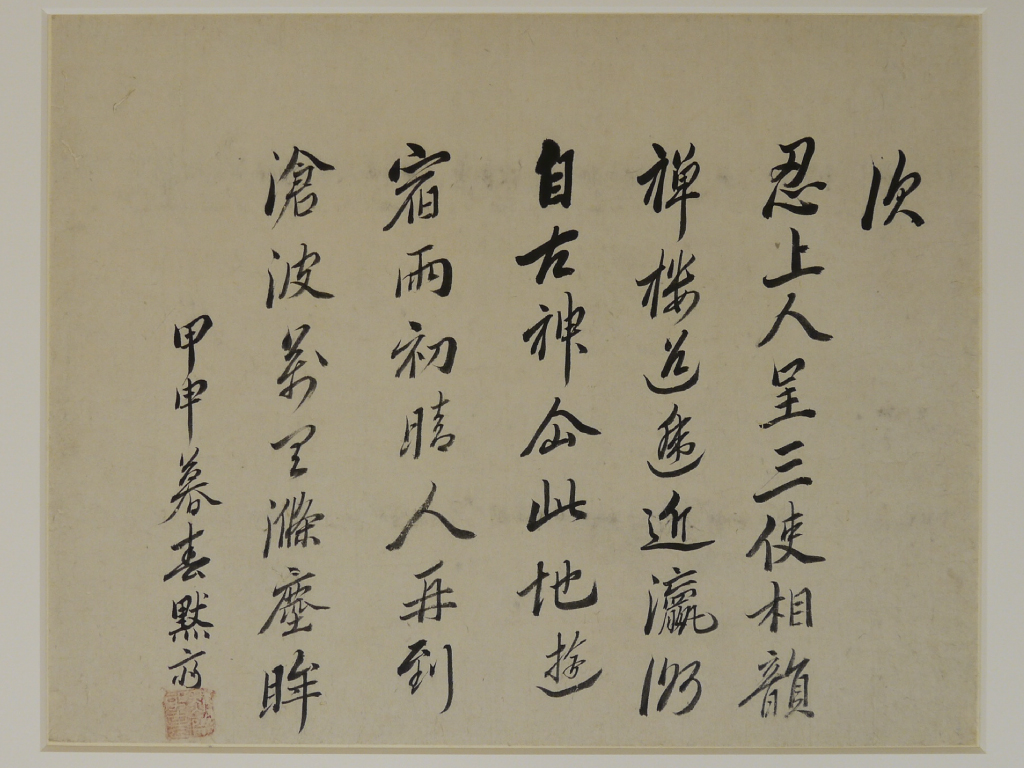 次
忍上人呈三使相韻
禅楼迢遞近瀛洲
自古神仚此地遊
宿雨初晴人再到
滄波萬里滌塵眸
甲申暮春默斎